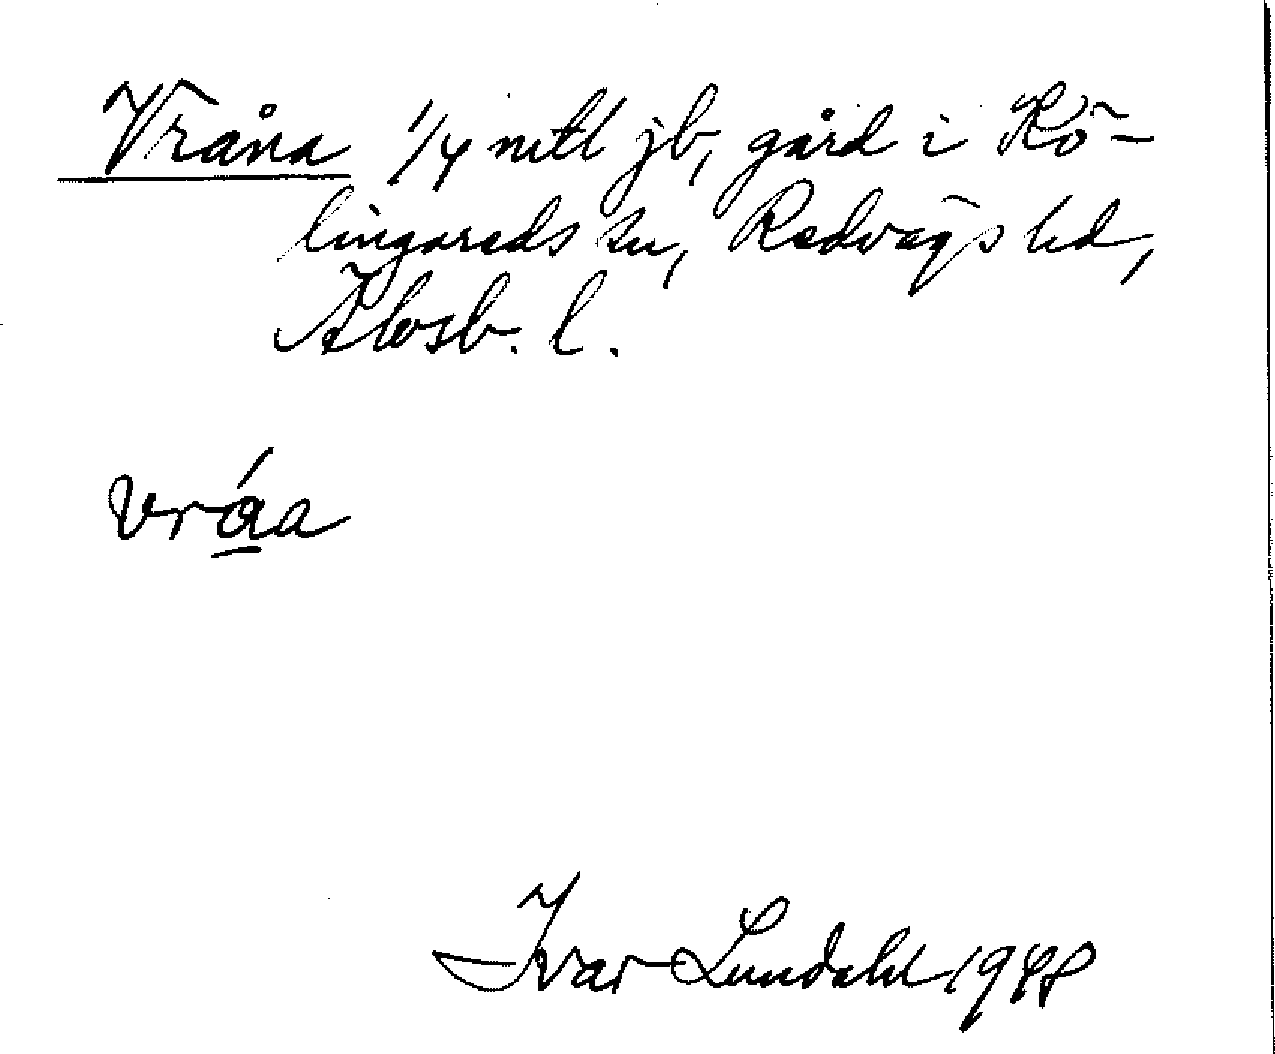 Vråna 1/4 mtl jb, gård i Kö-
lingareds sn, Redvägs hd,
Älvsb. l.
vráa
Ivar Lundahl 1948